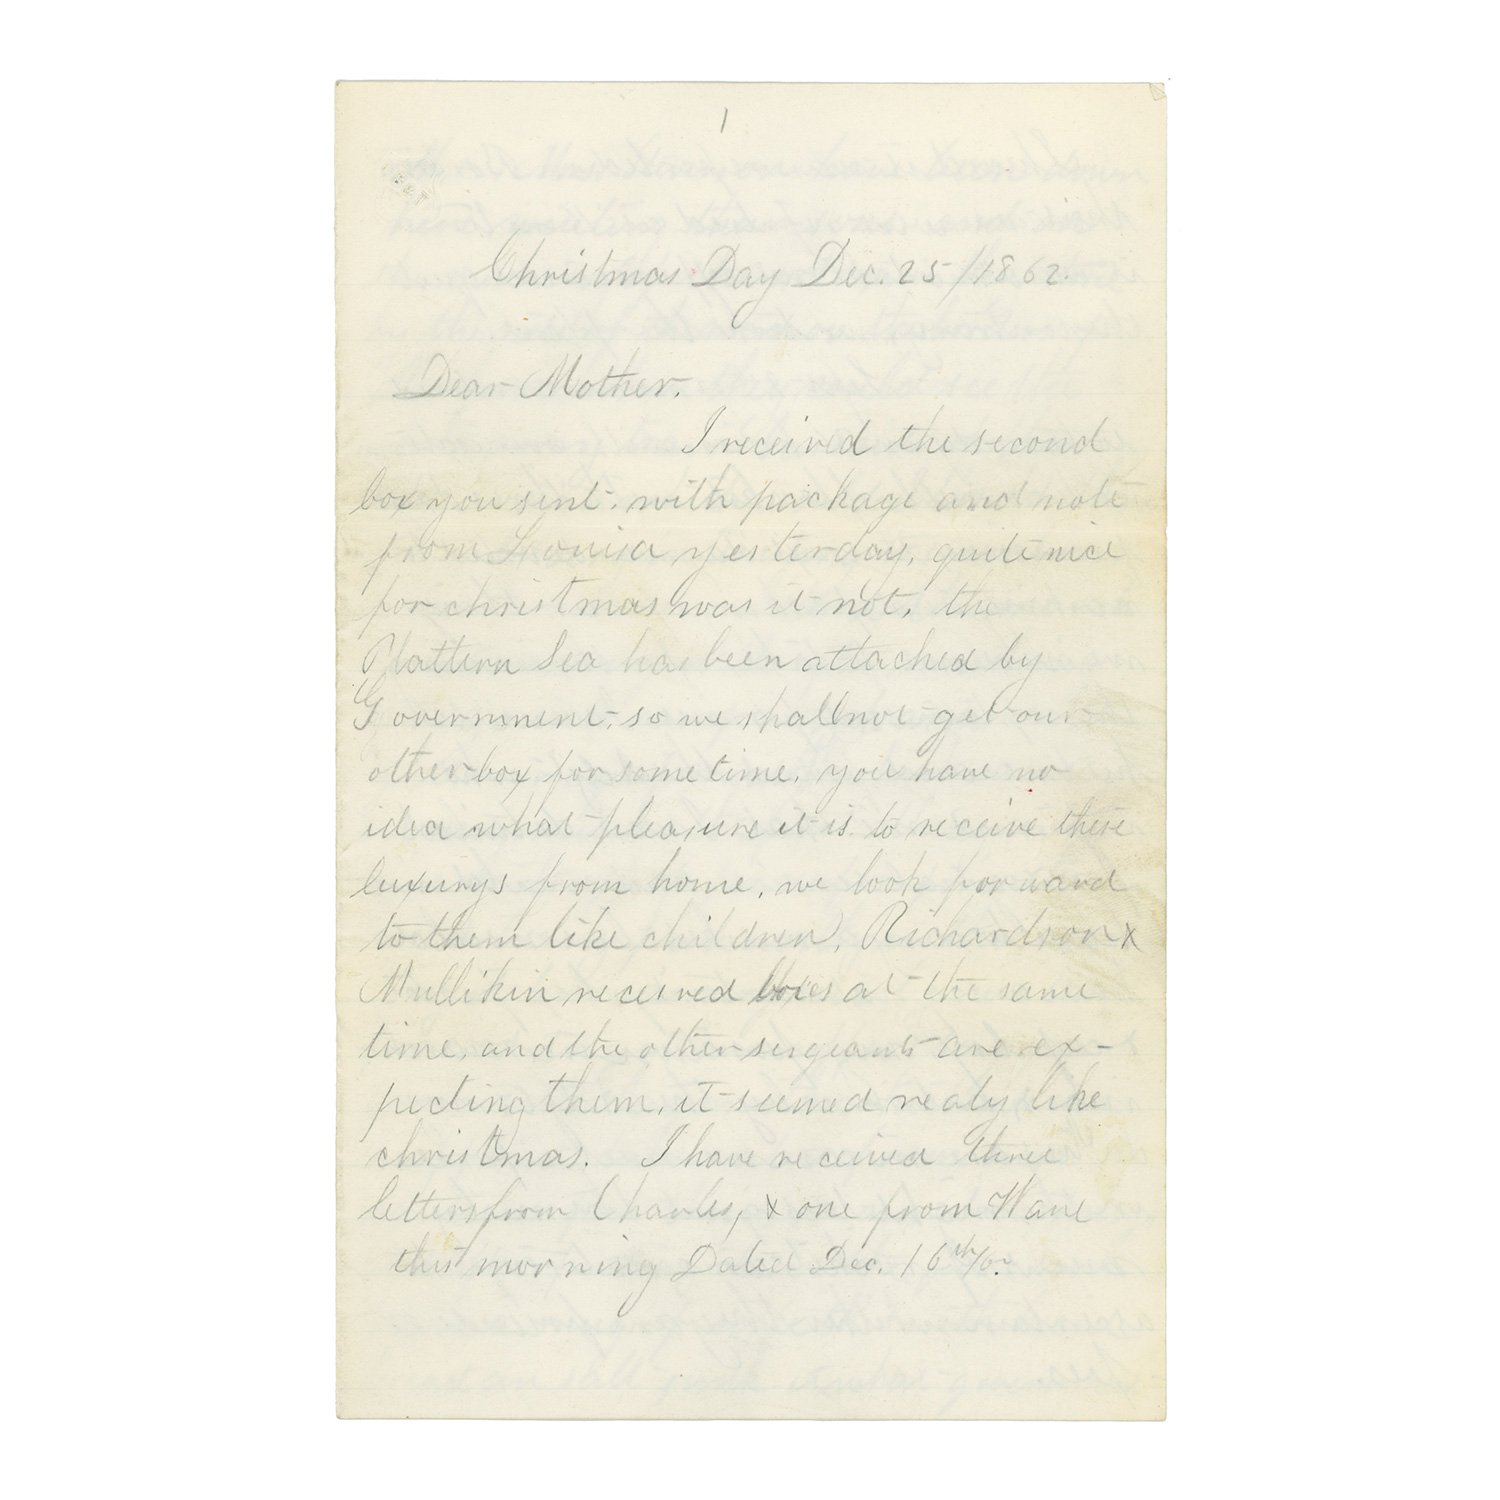 1
Christmas Day Dec. 25/1862.
Dear Mother.
I received the second
box you sent. with package and note
from Louisa yesterday, quite nice
for christmas was it not, the
Plattern Sea has been attached by
Government, so we shall not get our
other box for some time, you have no
idea what pleasure it is to receive these
luxurys from home, we look forward
to them like children, Richardson &
Mullikin received boxes at the same
time, and the other sergeants are ex-
pecting them, it seemed realy like
christmas. I have received three
letters from Charles, & one from Wane
this morning Dated Dec. 16th